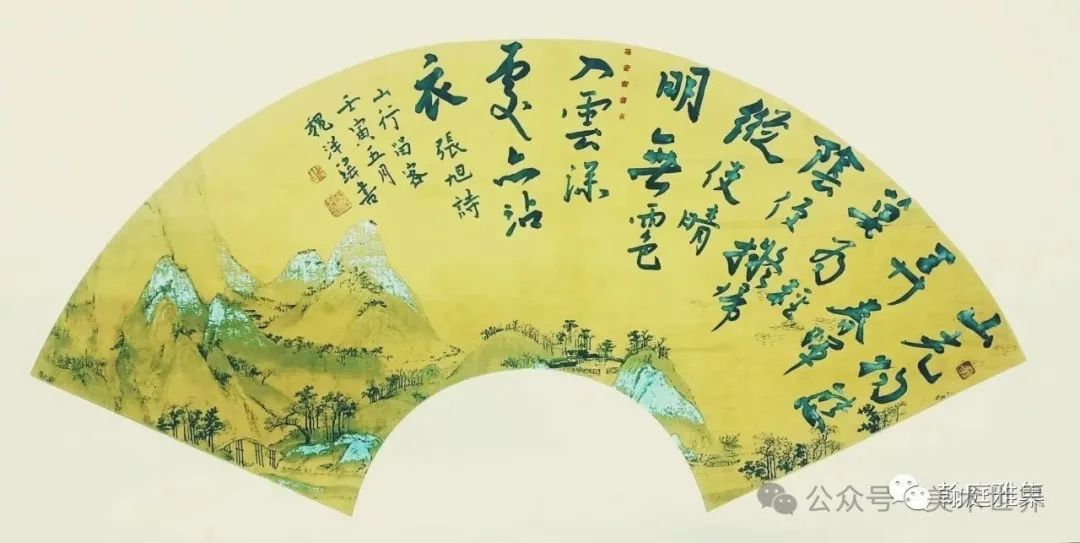 山光物態
弄春暉
莫為輕
陰便擬歸
縱使晴
明無雨色
入雲深
處亦沾
衣
張旭詩
山行留客
壬寅五月
魏洋瑤書
公众号·美术世界
翰庭雅集